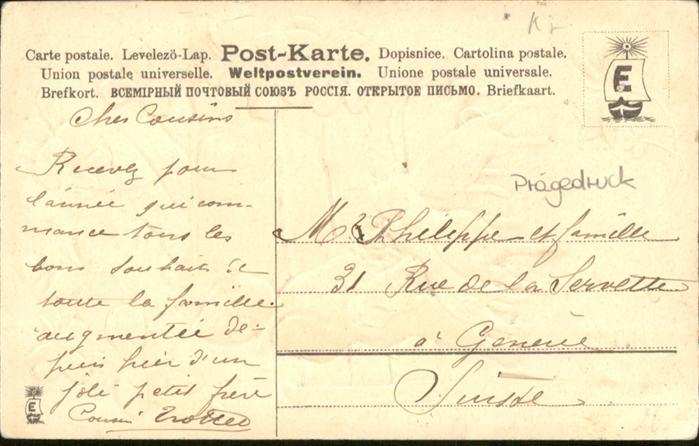 Carte postale. Levelezö-Lap. Post-Karte. Dopisnice. Cartolina postale.
Union postale universelle. Weltpostverein. Unione postale universale.
Brefkort. ВСЕМІРНЫЙ ПОЧТОВЫЙ СОЮЗЪ РОССІЯ. ОТКРЫТОЕ ПИСЬМО. Briefkaart.
E
Chers Cousins
Recevez pour
l'année qui com-
mance tous les
bons souhaits de
toute la famille
augmentée de-
puis hier d'un
joli petit frère
Cousin
E
Prägedruck
Mr Philippe et famille
31 Rue de la Servette
à Genève
Suisse